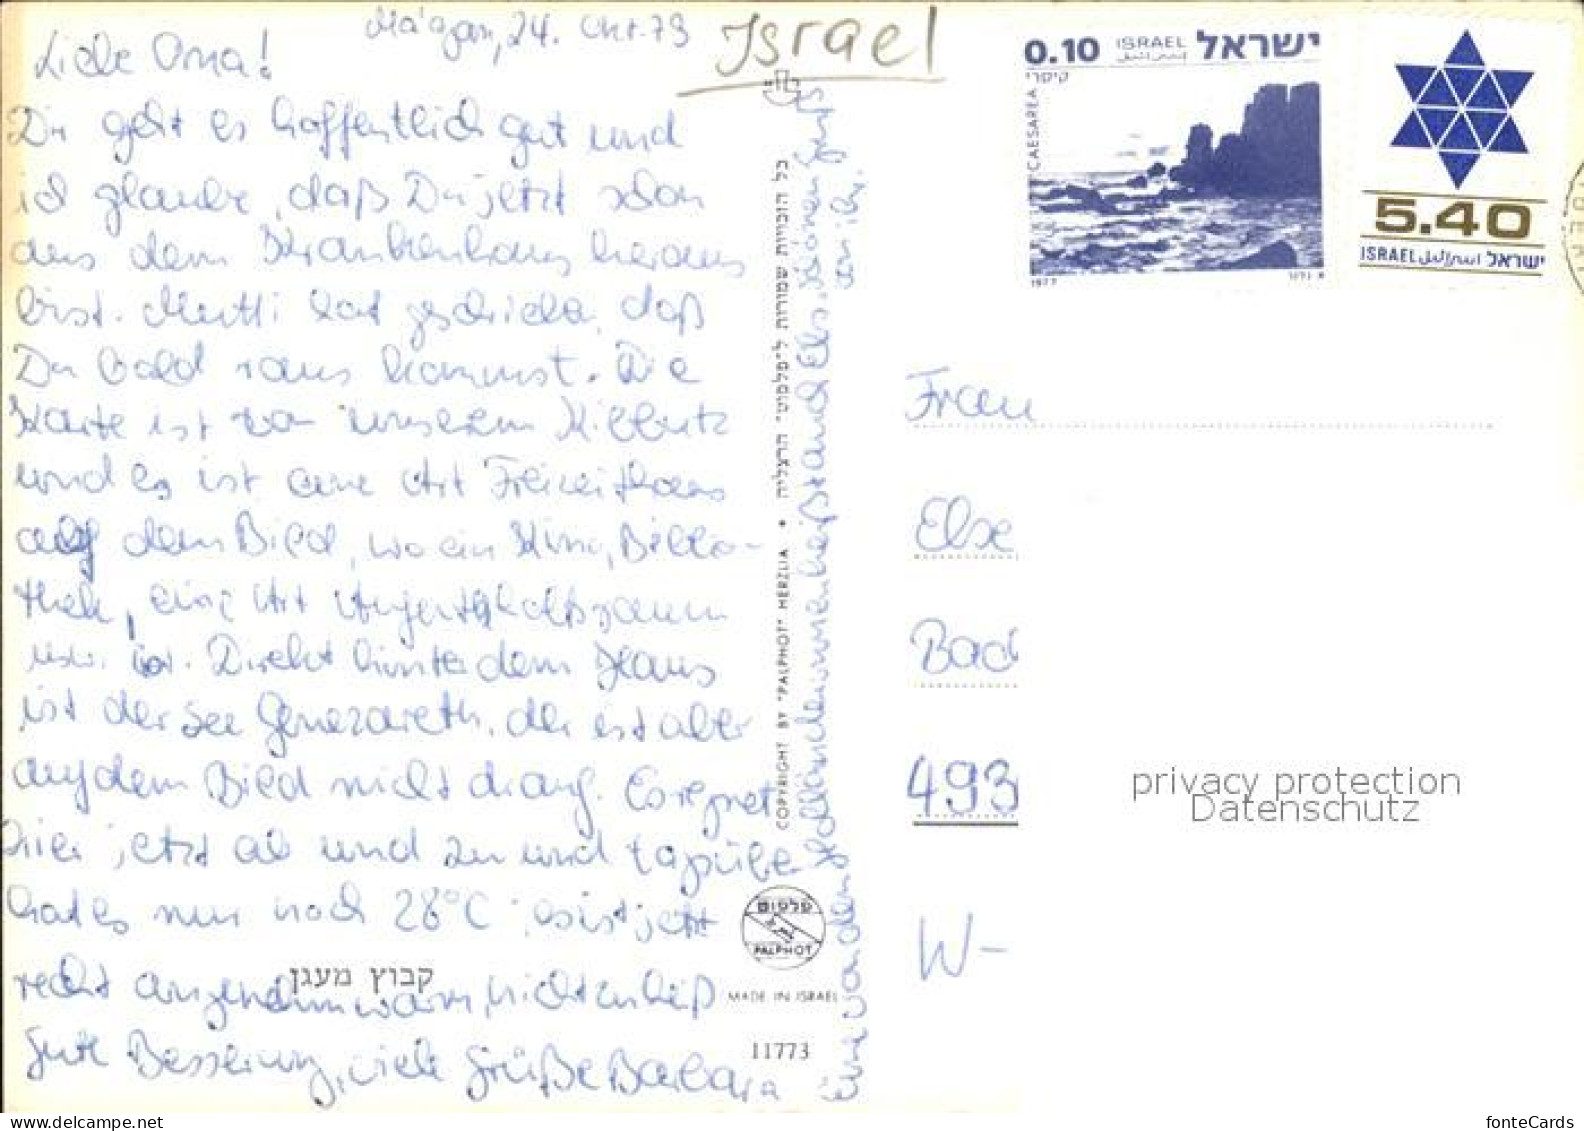 Ma'agan, 24. Okt. 79
Israel
Liebe Oma!
Dir geht es hoffentlich gut und
ich glaube, daß Du jetzt schon
aus dem Krankenhaus heraus
bist. Mutti hat geschrieben, daß
Du bald raus kommst. Die
Karte ist von unserem Kibbutz
und es ist eine Art Freizeithaus
auf dem Bild, wo ein Kino, Biblio-
thek, eine Art Aufenthaltsraum
usw. ist. Direkt hinter dem Haus
ist der See Genezareth, der ist aber
auf dem Bild nicht drauf. Es regnet
hier jetzt ab und zu und tagsüber
hat es nur noch 28°C, es ist jetzt
recht angenehm warm, nicht zu heiß
Gute Besserung, viele Grüße Barbara
קבוץ מעגן
Eine von den Holländerinnen heißt auch Els. Schönen Gruß
von ihr.
כל הזכויות שמורות ל"פלפוט" הרצליה • COPYRIGHT BY "PALPHOT" HERZLIA
פלפוט
PALPHOT
MADE IN ISRAEL
11773
0.10 ISRAEL ישראל
اسرائيل
קיסרי
CAESAREA
1977
5.40
ISRAEL اسرائيل ישראל
Frau
Else
Bad
493
W-
privacy protection
Datenschutz
fonteCards